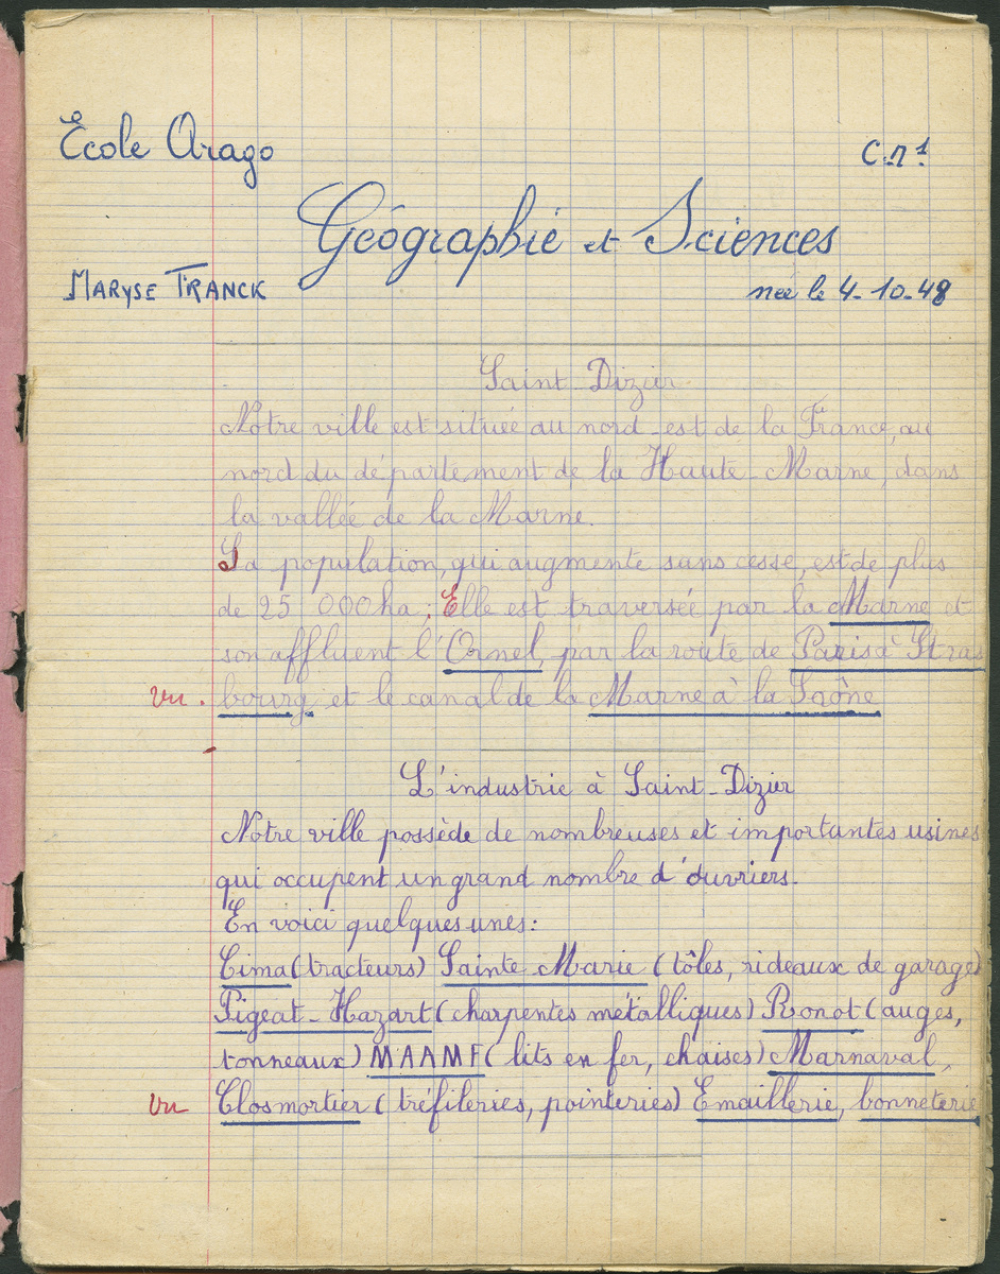 École Arago
C.M¹
Géographie et Sciences
MARYSE FRANCK
née le 4-10-48
Saint Dizier
Notre ville est située au nord-est de la France, au
nord du département de la Haute-Marne, dans
la vallée de la Marne.
Sa population, qui augmente sans cesse, est de plus
de 25 000 ha; Elle est traversée par la Marne et
son affluent l'Ornel, par la route de Paris à Stras
vu. bourg et le canal de la Marne à la Saône
L'industrie à Saint-Dizier
Notre ville possède de nombreuses et importantes usines
qui occupent un grand nombre d'ouvriers.
En voici quelques unes:
Cima (tracteurs) Sainte Marie (tôles, rideaux de garage)
Pigeat-Hazart (charpentes métalliques) Ronot (auges,
tonneaux) MAAMF (lits en fer, chaises) Marnaval,
vu Closmortier (tréfileries, pointeries) Emaillerie, bonneterie